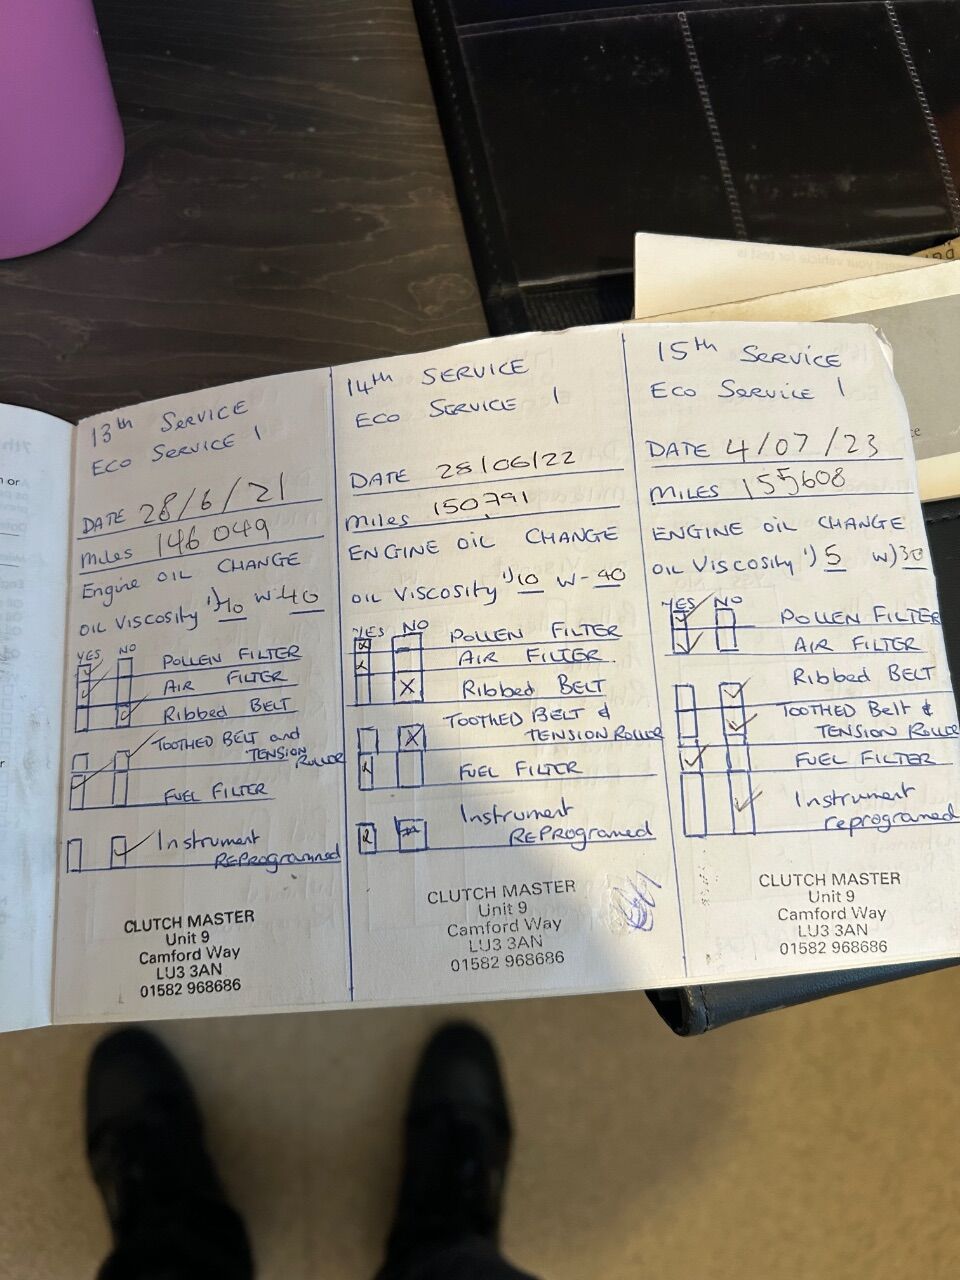 13th SERVICE
ECO SERVICE 1
DATE 28/6/21
Miles 146 049
Engine OIL CHANGE
OIL VISCOSITY 1) 10 W-40
YES NO
POLLEN FILTER
AIR FILTER
Ribbed BELT
TOOTHED BELT and
TENSION Roller
FUEL FILTER
Instrument
REPrograммed
CLUTCH MASTER
Unit 9
Camford Way
LU3 3AN
01582 968686
14th SERVICE
ECO SERVICE 1
DATE 28/06/22
Miles 150791
ENGINE OIL CHANGE
OIL VISCOSITY 1) 10 W-40
YES NO
POLLEN FILTER
AIR FILTER.
Ribbed BELT
TOOTHED BELT &
TENSION Roller
FUEL FILTER
Instrument
REPrograмed
CLUTCH MASTER
Unit 9
Camford Way
LU3 3AN
01582 968686
15th SERVICE
ECO SERVICE 1
DATE 4/07/23
MILES 155608
ENGINE OIL CHANGE
OIL VISCOSITY 1) 5 W) 30
YES NO
POLLEN FILTER
AIR FILTER
Ribbed BELT
TOOTHED Belt &
TENSION Roller
FUEL FILTER
Instrument
reprogramed
CLUTCH MASTER
Unit 9
Camford Way
LU3 3AN
01582 968686